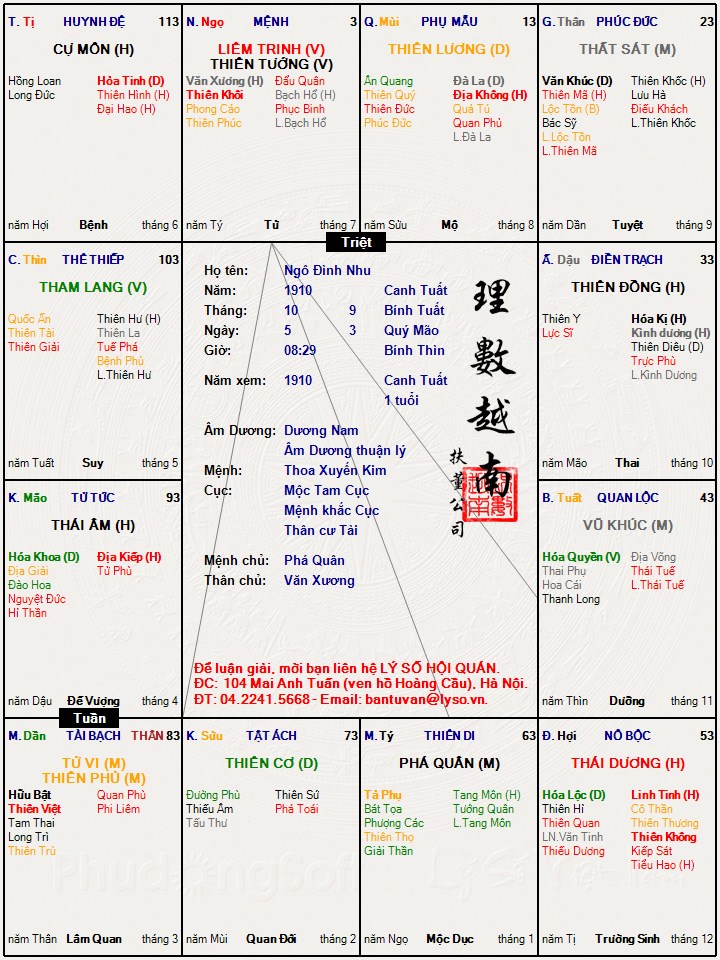 T. Tị HUYNH ĐỆ 113
CỰ MÔN (H)
Hồng Loan Hỏa Tinh (D)
Long Đức Thiên Hình (H)
Đại Hao (H)
năm Hợi Bệnh tháng 6
N. Ngọ MỆNH 3
LIÊM TRINH (V)
THIÊN TƯỚNG (V)
Văn Xương (H) Đẩu Quân
Thiên Khôi Bạch Hổ (H)
Phong Cáo Phục Binh
Thiên Phúc L.Bạch Hổ
năm Tý Tử tháng 7
Q. Mùi PHỤ MẪU 13
THIÊN LƯƠNG (D)
Ân Quang Đà La (D)
Thiên Quý Địa Không (H)
Thiên Đức Quả Tú
Phúc Đức Quan Phủ
L.Đà La
năm Sửu Mộ tháng 8
G. Thân PHÚC ĐỨC 23
THẤT SÁT (M)
Văn Khúc (D) Thiên Khốc (H)
Thiên Mã (H) Lưu Hà
Lộc Tồn (B) Điếu Khách
Bác Sỹ L.Thiên Khốc
L.Lộc Tồn
L.Thiên Mã
năm Dần Tuyệt tháng 9
Triệt
C. Thìn THÊ THIẾP 103
THAM LANG (V)
Quốc Ấn Thiên Hư (H)
Thiên Tài Thiên La
Thiên Giải Tuế Phá
Bệnh Phù
L.Thiên Hư
năm Tuất Suy tháng 5
Họ tên: Ngô Đình Nhu
Năm: 1910 Canh Tuất
Tháng: 10 9 Bính Tuất
Ngày: 5 3 Quý Mão
Giờ: 08:29 Bính Thìn
Năm xem: 1910 Canh Tuất
1 tuổi
Âm Dương: Dương Nam
Âm Dương thuận lý
Mệnh: Thoa Xuyến Kim
Cục: Mộc Tam Cục
Mệnh khắc Cục
Thân cư Tài
Mệnh chủ: Phá Quân
Thân chủ: Văn Xương
理數越南
扶董公司
Để luận giải, mời bạn liên hệ LÝ SỐ HỘI QUÁN.
ĐC: 104 Mai Anh Tuấn (ven hồ Hoàng Cầu), Hà Nội.
ĐT: 04.2241.5668 - Email: bantuvan@lyso.vn.
Ấ. Dậu ĐIỀN TRẠCH 33
THIÊN ĐỒNG (H)
Thiên Y Hóa Kị (H)
Lực Sĩ Kình dương (H)
Thiên Diêu (D)
Trực Phù
L.Kình Dương
năm Mão Thai tháng 10
K. Mão TỬ TỨC 93
THÁI ÂM (H)
Hóa Khoa (D) Địa Kiếp (H)
Địa Giải Tử Phù
Đào Hoa
Nguyệt Đức
Hỉ Thần
năm Dậu Đế Vượng tháng 4
B. Tuất QUAN LỘC 43
VŨ KHÚC (M)
Hóa Quyền (V) Địa Võng
Thai Phụ Thái Tuế
Hoa Cái L.Thái Tuế
Thanh Long
năm Thìn Dưỡng tháng 11
Tuần
M. Dần TÀI BẠCH THÂN 83
TỬ VI (M)
THIÊN PHỦ (M)
Hữu Bật Quan Phù
Thiên Việt Phi Liêm
Tam Thai
Long Trì
Thiên Trù
năm Thân Lâm Quan tháng 3
K. Sửu TẬT ÁCH 73
THIÊN CƠ (D)
Đường Phù Thiên Sứ
Thiếu Âm Phá Toái
Tấu Thư
năm Mùi Quan Đới tháng 2
M. Tý THIÊN DI 63
PHÁ QUÂN (M)
Tả Phụ Tang Môn (H)
Bát Tọa Tướng Quân
Phượng Các L.Tang Môn
Thiên Thọ
Giải Thần
năm Ngọ Mộc Dục tháng 1
Đ. Hợi NÔ BỘC 53
THÁI DƯƠNG (H)
Hóa Lộc (D) Linh Tinh (H)
Thiên Hỉ Cô Thần
Thiên Quan Thiên Thương
LN.Văn Tinh Thiên Không
Thiếu Dương Kiếp Sát
Tiểu Hao (H)
năm Tị Trường Sinh tháng 12